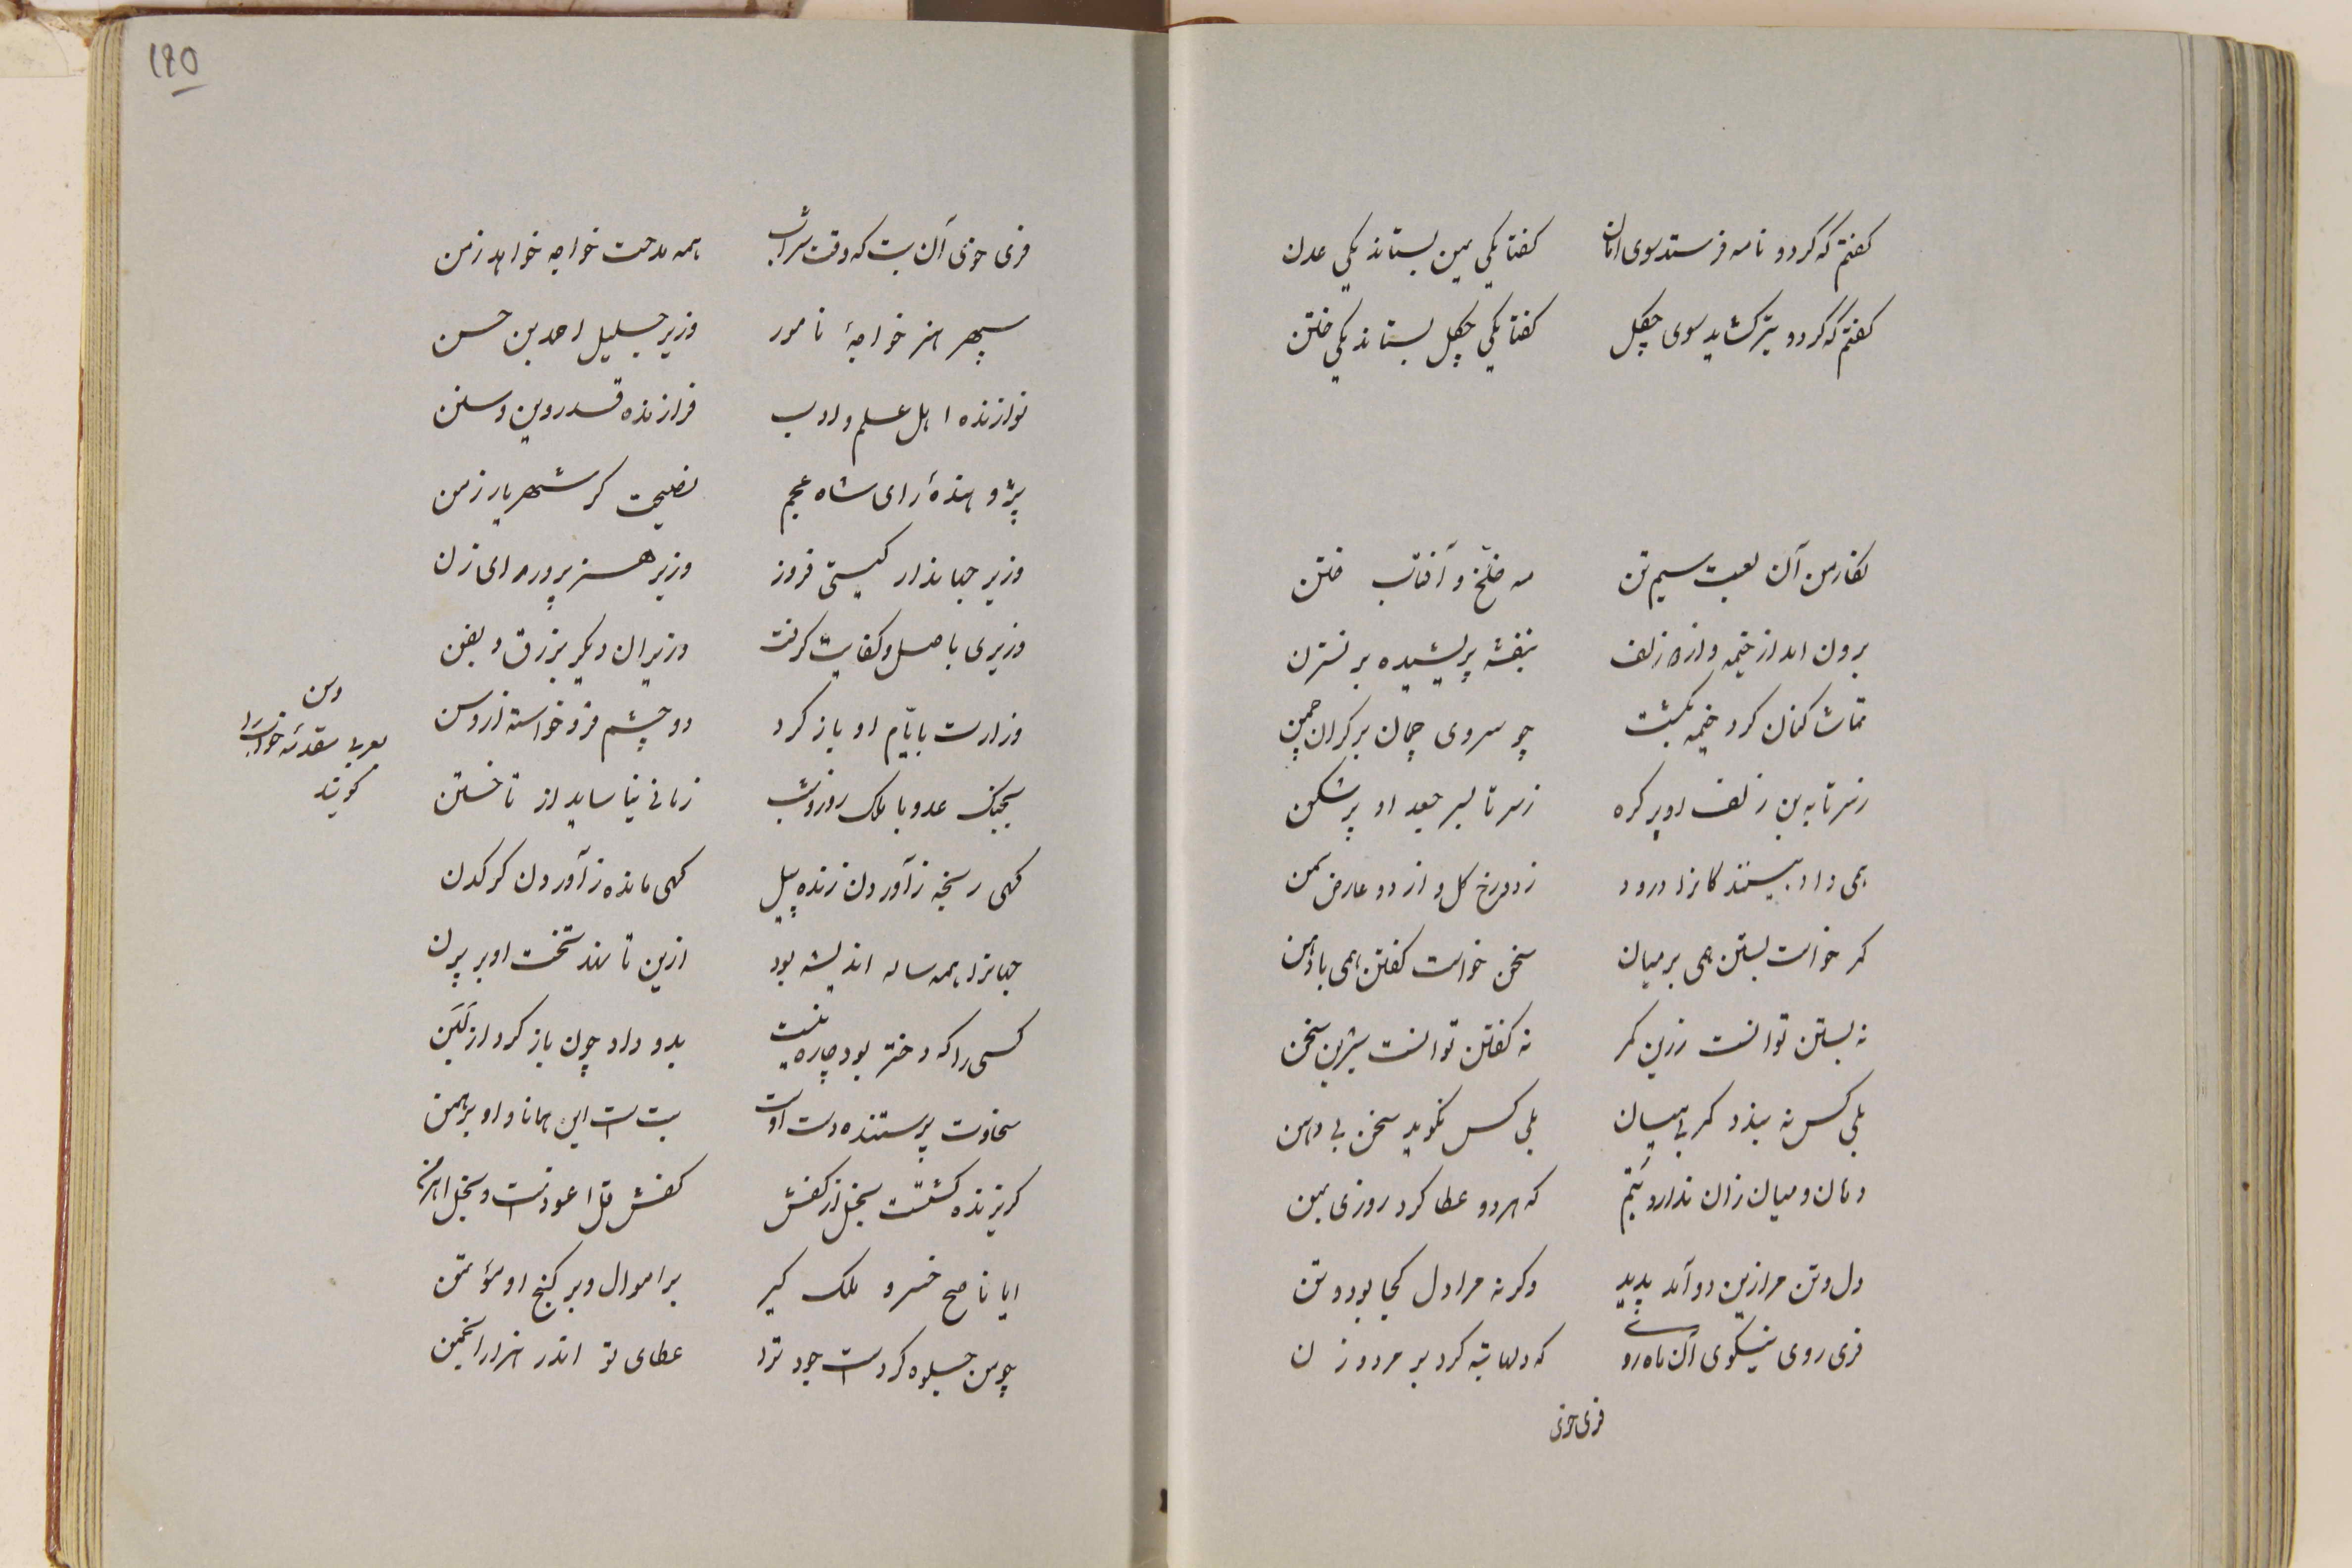 گفتم که گر دو نامه فرستد سوی امان گفتا یکی یمن بستاند یکی عدن
گفتم که گر دو تیر گشاید سوی چگل گفتا یکی چگل بستاند یکی ختن
نگار من آن لعبت سیم تن مه خلخ و آفتاب ختن
برون امد از خیمه و از دو زلف بنفشه پریشیده بر نسترن
تماشا کنان گرد خیمه بگشت چو سروی چمان بر کران چمن
ز سر تا به بن زلف او پر گره ز سر تا بسر جعد او پر شکن
همی داد بینندگانرا درود ز دو رخ گل و از دو عارض سمن
کمر خواست بستن همی بر میان سخن خواست گفتن همی با دهن
نه بستن توانست زرین کمر نه گفتن توانست شیرین سخن
بلی کس نه بندد کمر بی میان بلی کس نگوید سخن بی دهن
دهان و میان زان ندارد بتم که هر دو عطا کرد روزی بمن
دل و تن مرا زین دو آمد پدید وگرنه مرا دل کجا بود و تن
فری روی نیکوی آن ماه رو که دلها تبه کرد بر مرد و زن
فری خوی
۱۴۵
فری خوی آن بت که وقت شراب همه مدحت خواجه خواهد ز من
سپهر هنر خواجهٔ نامور وزیر جلیل احمد بن حسن
نوازنده اهل علم و ادب فرازنده قدر دین و سنن
پژوهندهٔ رای شاه عجم نصیحت گر شهریار زمن
وزیر جهاندار گیتی فروز وزیر هنرپرور رای زن
وزیری باصل و کفایت گرفت وزیران دیگر بزرق و بفن
وزارت بایّام او باز کرد دو چشم فرو خواسته از وسن
وسن
بعربی مقدمه خواب را
گویند
بجنگ عدو با ملک روز و شب زمانی نیاساید از تاختن
گهی رنجه ز آوردن زنده پیل گهی مانده ز آوردن کرگدن
جهانرا همه ساله اندیشه بود ازین تا نهد تخت او بر پرن
کسی را که دختر بود چاره نیست بدو داد چون باز کرد از لَبَن
سخاوت پرستنده دست اوست بت است این همانا و او برهمن
گریزنده گشتست بخل از کفش کفش قل اعوذست و بخل اهرمن
ایا ناصح خسرو ملک گیر بر اموال و بر گنج او مؤتمن
چو من جلوه کردست جود ترا عطای تو اندر هزار انجمن